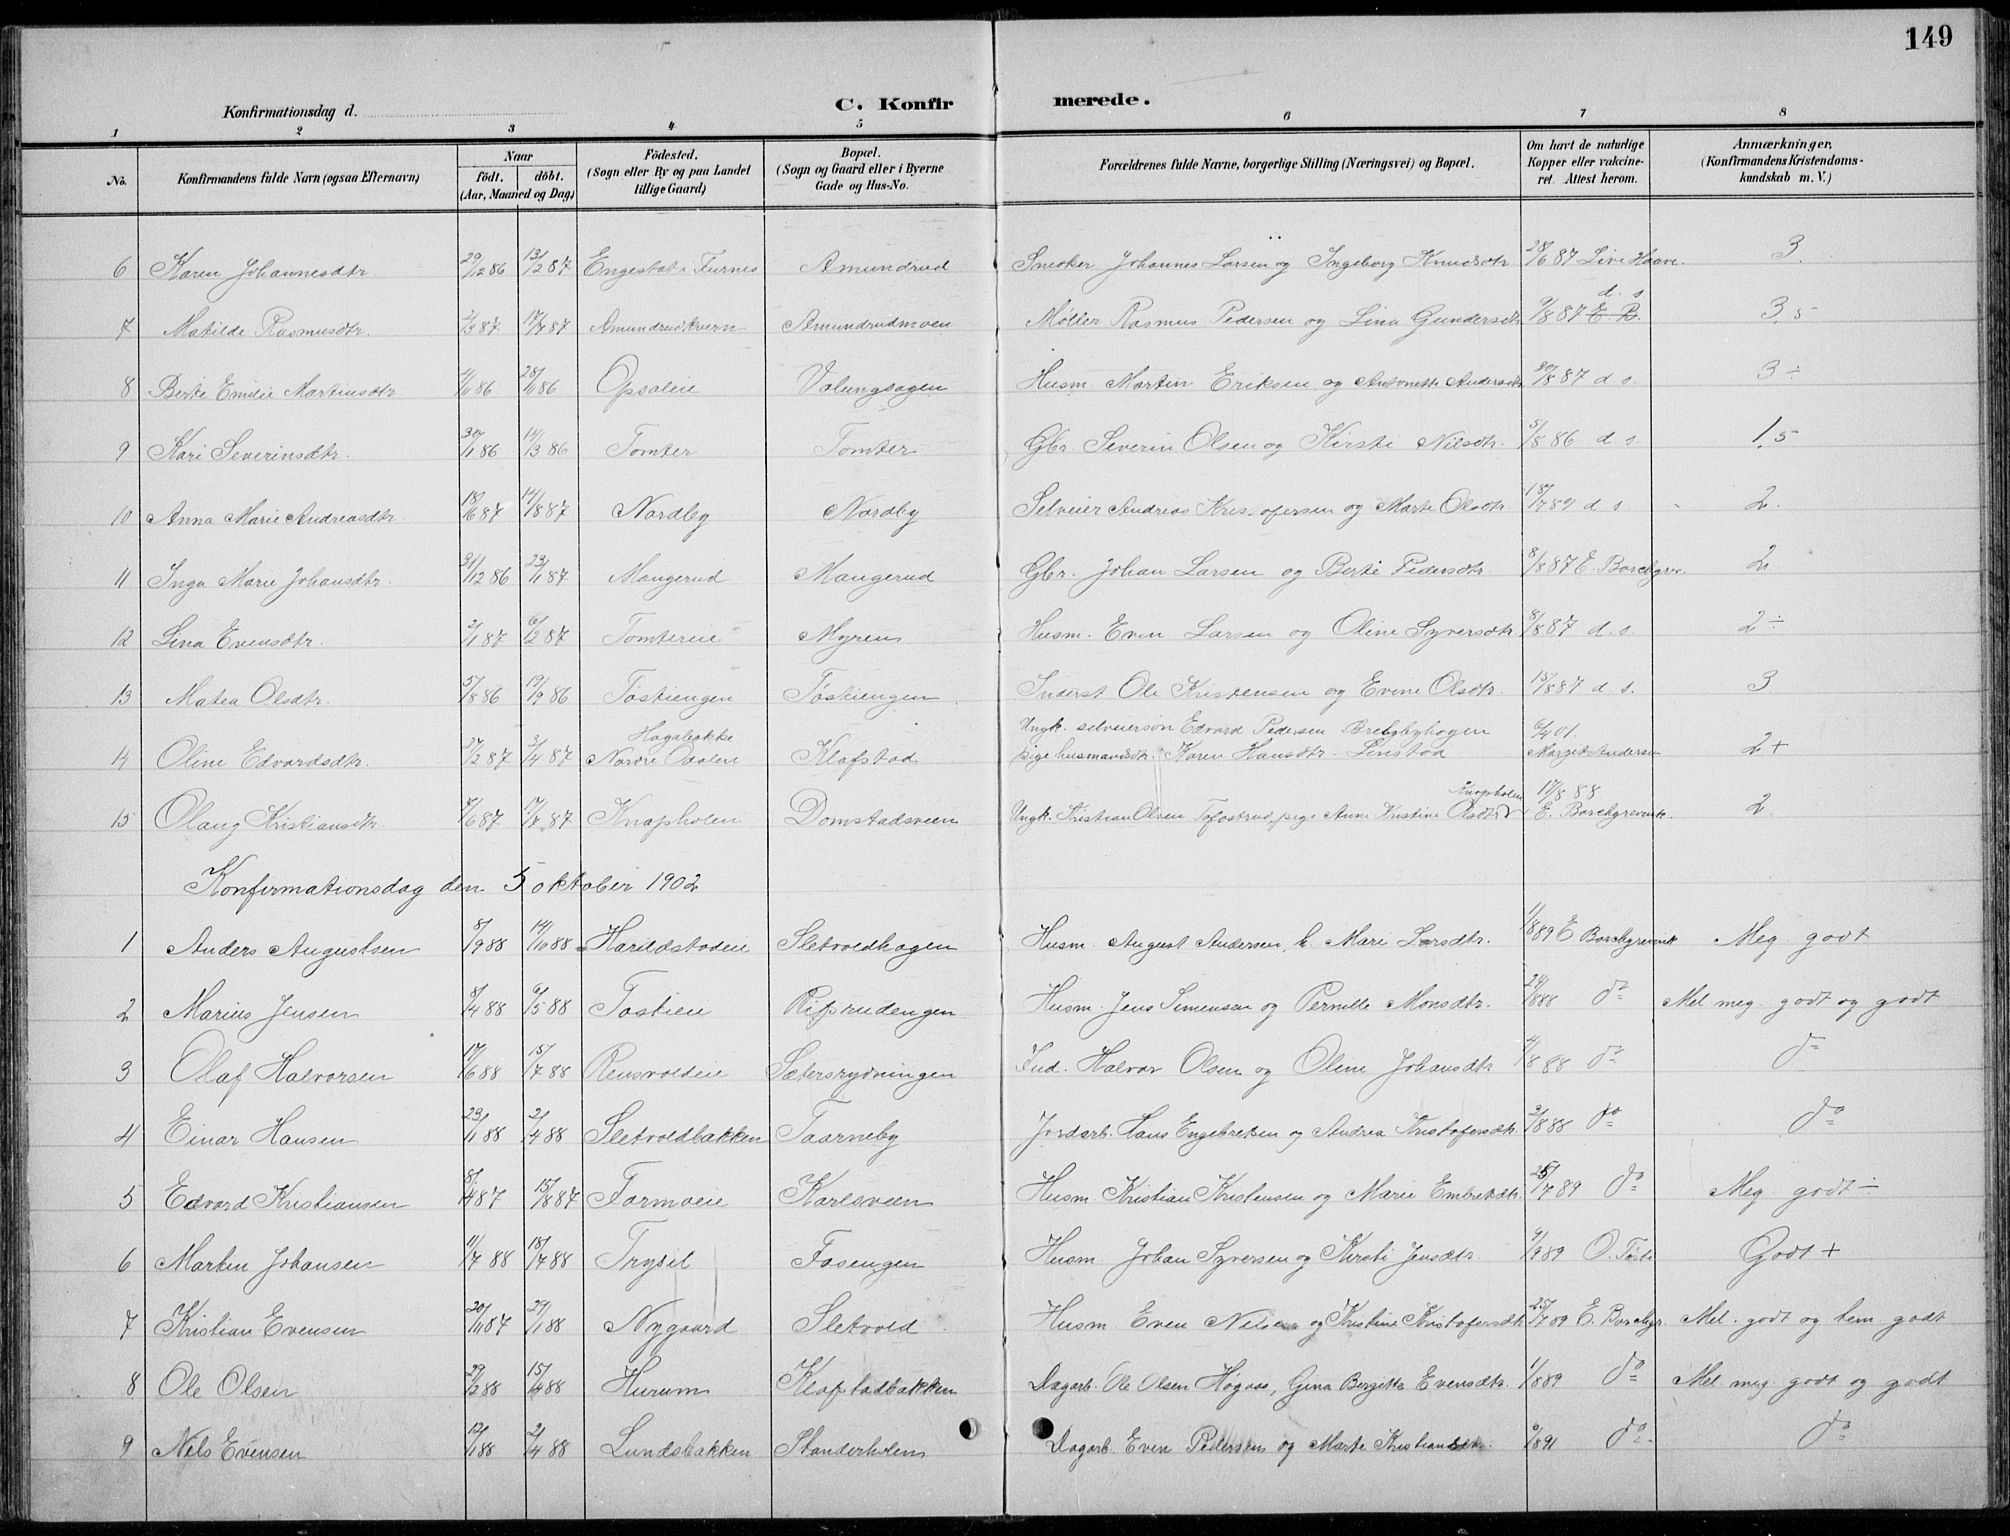 149
Konfirmationsdag d.
C. Konfirmerede.
1 2 3 4 5 6 7 8
No. Konfirmandens fulde Navn (ogsaa Efternavn) Naar födt. döbt. (Aar, Maaned og Dag) Födested. (Sogn eller By og paa Landet tillige Gaard) Bopæl. (Sogn og Gaard eller i Byerne Gade og Hus-No. Forældrenes fulde Navne, borgerlige Stilling (Næringsvei) og Bopæl. Om havt de naturlige Kopper eller vakcineret. Attest herom. Anmærkninger, (Konfirmandens Kristendomskundskab m. V.)
6 Karen Johannesdtr. 29/12 86 13/2 87 Engestat i Furnes Amundrud Snedker Johannes Larsen og Ingeborg Knudsdtr 28/6 87 3.
7 Matilde Rasmusdtr. 2/3 87 17/7 87 Amundrudkvern Amundrudmoen Møller Rasmus Pedersen og Lina Gundersdtr 9/8 87 E B. d. s 3,5
8 Berte Emilie Martinsdtr 86 28/11 86 Opsaleie Volungsagen Husm. Martin Eriksen og Antonette Andersdtr 30/8 87 d s. 3÷
9 Kari Severinsdtr. 30/1 86 14/3 86 Tomter Tomter Gbr Severin Olsen og Kirsti Nilsdtr. 5/8 86 d s. 1,5
10 Anna Marie Andreasdtr 18/6 87 14/8 87 Nordby Nordby Selveier Andreas Kris. ofersen og Marte Olsdtr 18/7 89 d s. 2.
11 Inga Marie Johansdtr. 31/12 86 23/1 87 Mangerud Mangerud Gbr. Johan Larsen og Berte Pedersdtr 8/8 87 E. Borchgrev. 2
12 Lina Evensdtr. 2/1 87 6/2 87 Tomtereie Myren Husm. Even Larsen og Oline Syversdtr 8/8 87 d. s. 2÷
13 Matea Olsdtr. 5/8 86 19/9 86 Tostiengen Tostiengen Inderst Ole Kristensen og Evine Olsdtr. 15/8 87 d. s. 3
14 Oline Edvardsdtr. 27/2 87 3/4 87 Hagabakke Nordre Odalen Klafstad Ungk. selveiersøn Edvard Pedersen pige husmandsdtr. Karen Hansdtr. Linstad 6/4 01. Margit Andersen 2+
15 Olaug Kristiansdtr. 7/6 87 17/7 87 Knapholen Domstadsveen Ungk. Kristian Olsen Tofastrud, pige Anne Kristine Olsdtr Knapholen 17/8 88 E. Borchgrevink. 2.
Konfirmationsdag den 5 oktober 1902
1 Anders Augustsen 8/9 88 14/10 88 Harildstadeie Sletvoldhagen Husm. August Andersen, h. Mari Larsdtr. 1/8 89 E Borchgrevink Meg godt
2 Marius Jensen 8/4 88 6/5 88 Tostieie Rifsrudengen Husm. Jens Simensen og Pernille Monsdtr. 24/8 88 do Mel. meg. godt og godt
3 Olaf Halvorsen 17/6 88 15/7 88 Rensvoldeie Sætersrydningen Ind. Halvor Olsen og Oline Johansdtr 4/8 88 do do
4 Einar Hansen 23/1 88 2/4 88 Sletvoldbakken Taarneby Jordarb. Hans Engebretsen og Andrea Kristofersdtr. 3/8 88 do do
5 Edvard Kristiansen 8/4 87 15/8 87 Formoeie Karlsveen Husm. Kristian Kristensen og Marie Embretsdtr. 25/7 89 do Meg godt÷
6 Martin Johansen 11/7 88 18/7 88 Trysil Fosengen Husm. Johan Syversen og Kirsti Jensdtr. 9/9 89 O. Toste Godt +
7 Kristian Evensen 20/11 87 29/1 88 Nygaard Sletvold Husm. Even Nilsen og Kristine Kristofersdtr. 25/7 89 E. Borchgr. Mel. godt og tem godt
8 Ole Olsen 29/2 88 15/4 88 Hurum Klafstadbakken Dagarb. Ole Olsen Høgaas, Gina Bergitte Evensdtr. 1/8 89 do Mel meg godt og godt
9 Nils Evensen 12/1 88 2/4 88 Lundsbakken Standerholen Dagarb. Even Pedersen og Marte Kristiansdtr. 6/8 91 do do